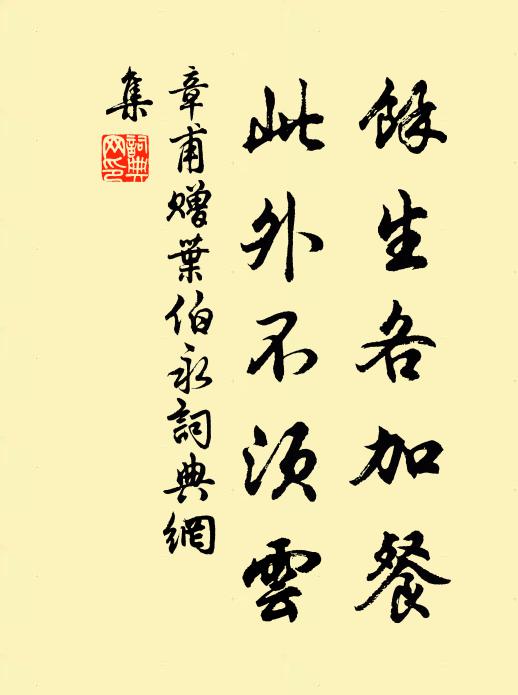 餘生各加餐
此外不須雲
章甫贈葉伯永詞典網
集
詞典
网印